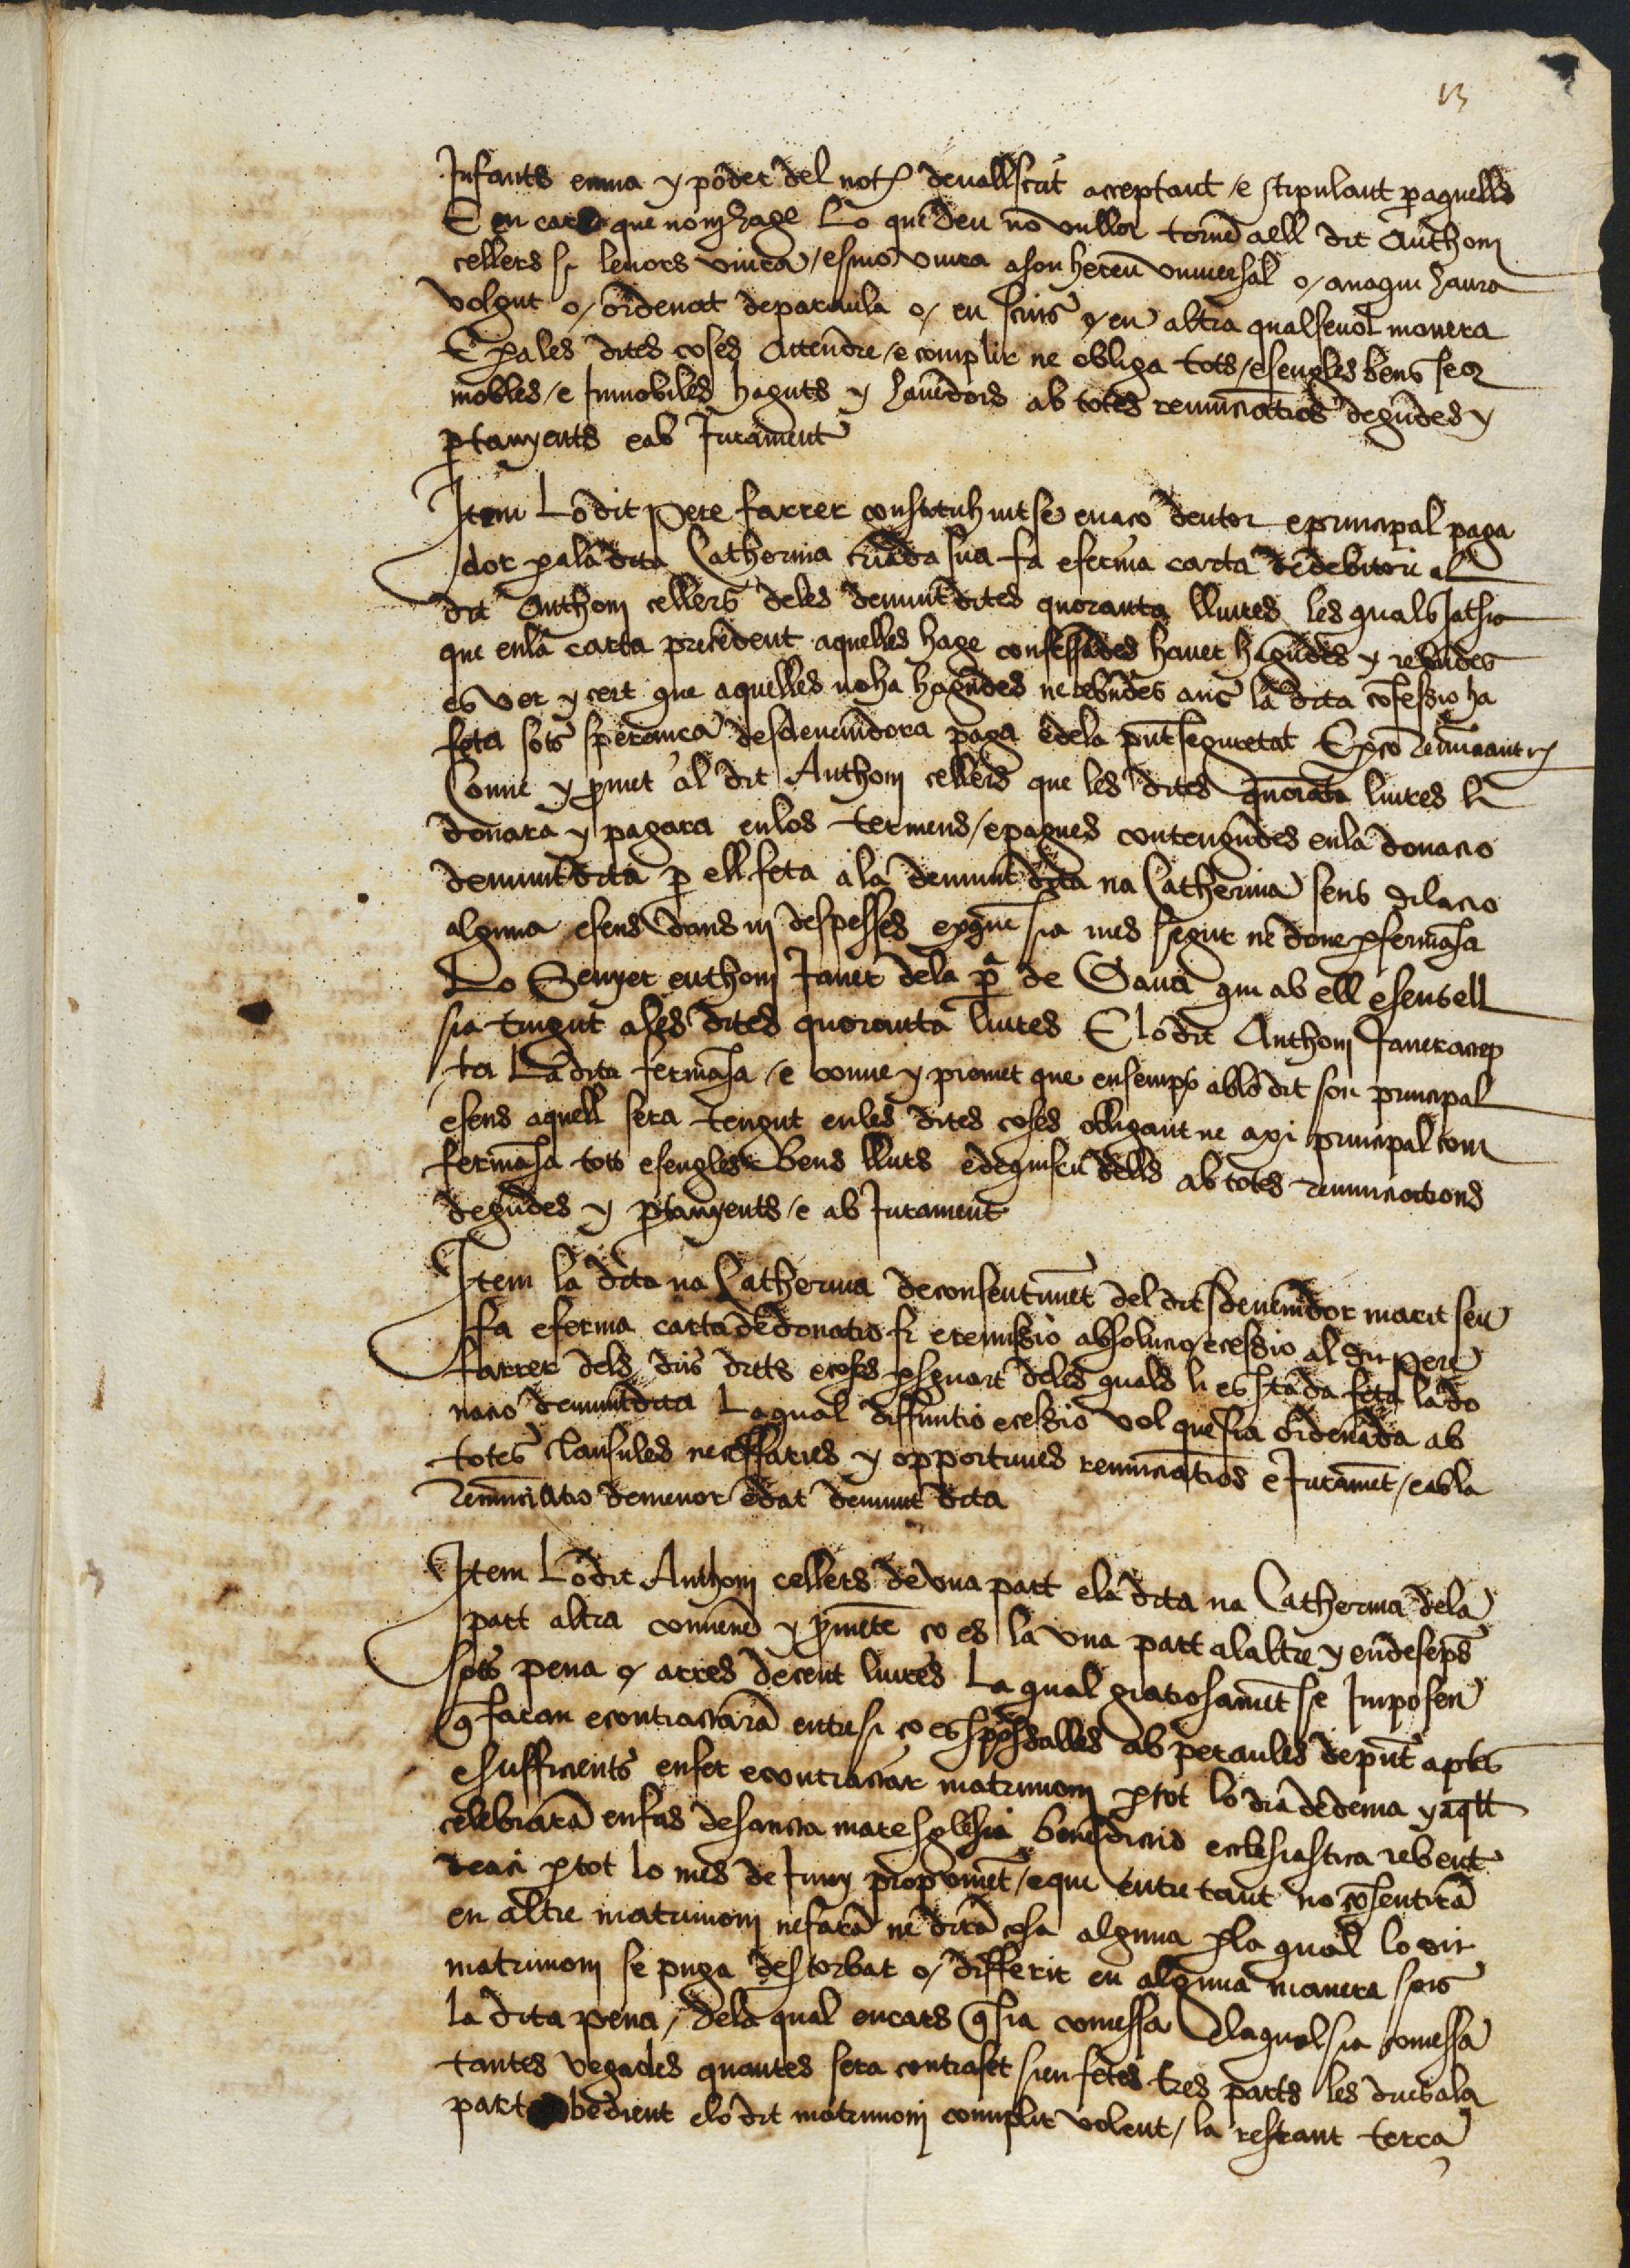 13
Infants en ma y poder del not devallscrit acceptant e stipulant p aquells
E en cas que nom hage Lo que deu no vulla torne a ell dit Anthoni
cellers si lenors viura / e si no viura a son hereu universal o / a na qui haura
volgut o / ordenat de paraula o / en scrits o / en altra qualsevol manera
E p a les dites coses attendre / e complir ne obliga tots / e sengles bens seus
mobles / e Immobiles haguts y havedors ab totes renunciations degudes y
ptanyents e ab Jurament
Item Lo dit Pere farrer constituhint se en aço deutor e principal paga
dor p a la dita Catherina criada sua fa e ferma carta de debitori al
dit Anthoni cellers de les demunt dites quoranta lliures les quals Jatsia
que en la carta precedent aquelles hage confessades haver hagudes y rebudes
es ver y cert que aquelles no ha hagudes ne rebudes ans la dita cofessio ha
feta sots sperança de sdevenidora paga e de la pnt seguretat E p ço renunciant
Conve y pmet al dit Anthoni cellers que les dites quoranta liures li
donara y pagara en los termens / e pagues contengudes en la donacio
demunt dita p ell feta a la demunt dita na Catherina sens dilacio
alguna e sens dans ni despesses e p que sia mes segur ne done p fermansa
Lo Senyer enthoni Janer de la p de Gava qui ab ell e sens ell
sia tingut a les dites quoranta liures E lo dit Anthoni Janer accep
ta La dita fermansa / e conve y promet que ensemps ab lo dit son principal
e sens aquell sera tengut en les dites coses obligant ne axi principal com
fermansa tots e sengles bens llurs e de quiscu dells ab totes renunciations
degudes y ptanyents / e ab Jurament
Item la dita na Catherina de consentimet del dit sdevenidor marit seu
fa e ferma carta de donatio fi e remissio absolucio / e cessio al dit Pere
farrer dels dits drets e coses p sguart de les quals li es stada feta la do
nacio demunt dita La qual diffinitio e cessio vol que sia ordenada ab
totes clausules necessaries y opportunes renunciatios e Jurament / e ab la
renunciatio de menor edat demunt dita
Item Lo dit Anthoni cellers de una part e la dita na Catherina de la
part altra convene y pmete ço es la una part a laltre y endesemps
sots pena o / arres de cent liures La qual gratiosamet se Imposen
q faran e contractara entre si ço es sposalles ab peraules de pnt aptes
e sufficients en fer e contractar matrimoni p tot lo dia de dema y aqll
celebrara en fas de sancta mare sglesia benedictio ecclesiastica rebent
de aci p tot lo mes de Juny prop vinet / e que entretant no cosentira
en altre matrimoni ne fara ne dira cosa alguna p la qual lo dit
matrimoni se puga destorbar o / differir en alguna manera sots
la dita pena / de la qual en cars q sia comessa e la qual sia comessa
tantes vegades quantes sera contrafet sien fetes tres parts les dues a la
part obedient e lo dit matrimoni complir volent / la restant terça